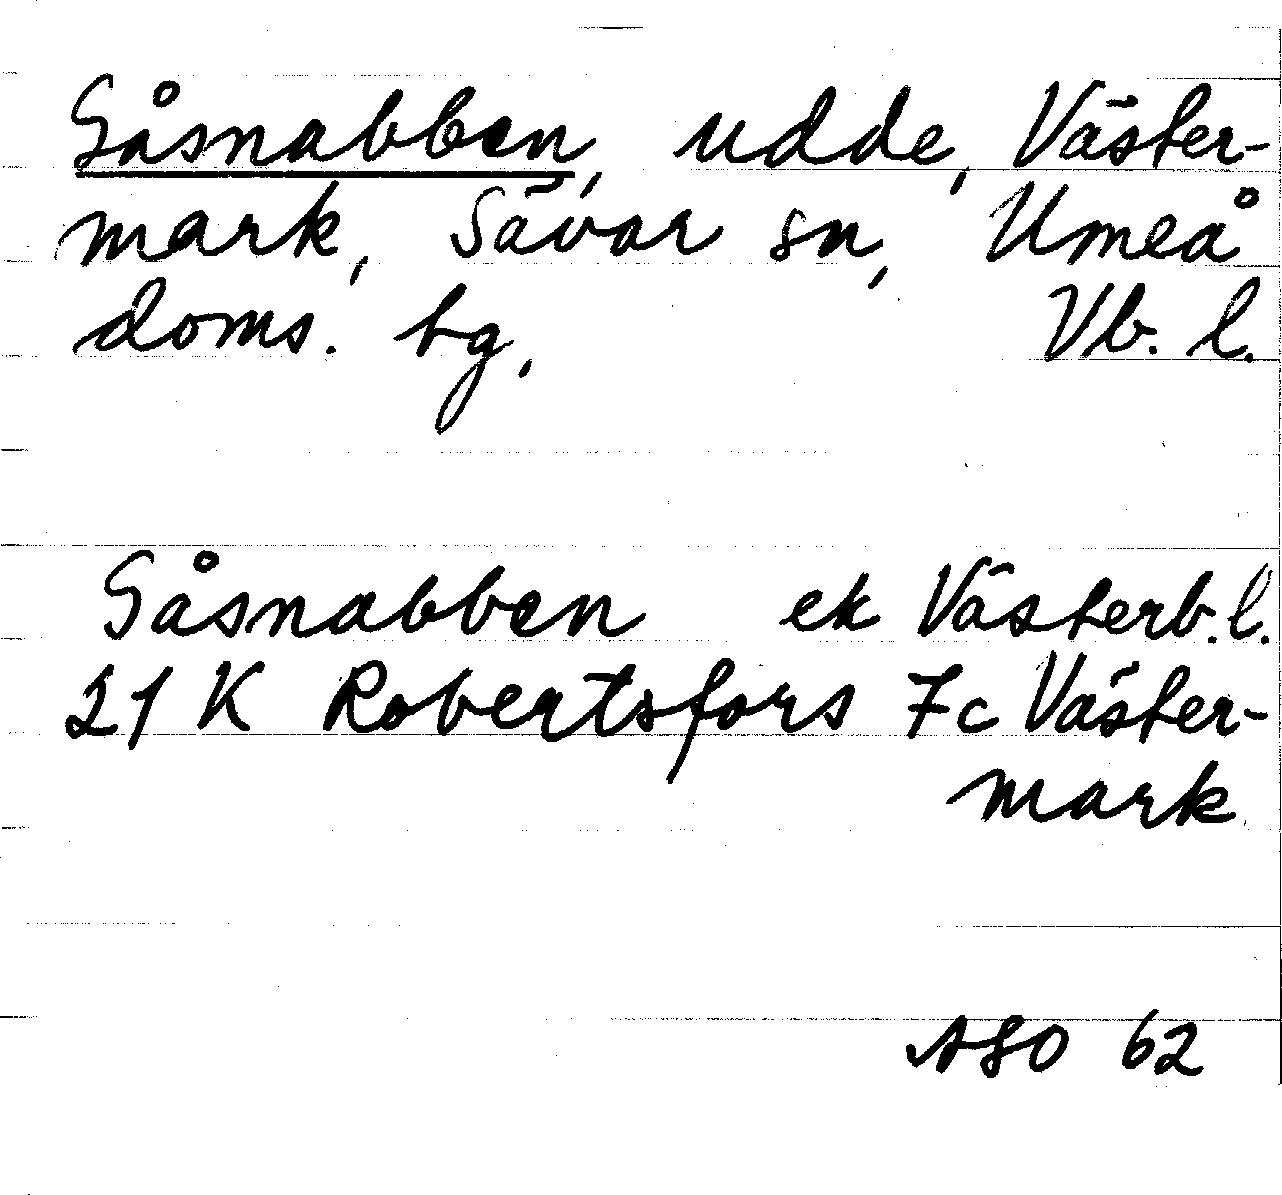 Gåsnabben, udde, Väster-
mark, Sävar sn, Umeå
doms. tg, Vb. l.
Gåsnabben ek Västerb. l.
21 K Robertsfors 7c Väster-
mark
ASO 62